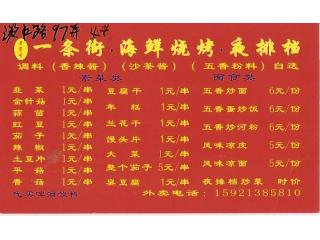 97弄
一条街·海鲜烧烤·夜排档
调料（香辣酱）（沙茶酱）（五香粉料）自选
素菜类 面食类
韭菜 1元/串 豆腐干 1元/串 五香炒面 6元/份
金针菇 1元/串 年糕 1元/串 五香蛋炒饭 6元/份
蒜苗 1元/串
豇豆 1元/串 兰花干 1元/串 五香炒河粉 6元/份
茄子 1元/串
辣椒 1元/串 馒头片 1元/串 风味凉皮 5元/份
土豆片 1元/串 大菜 1元/串
平菇 1元/串 整个茄子 5元/串 风味凉面 5元/份
香菇 1元/串 臭豆腐 1元/串 夜摊档炒菜 时价
代买啤酒饮料 外卖电话：15921385810